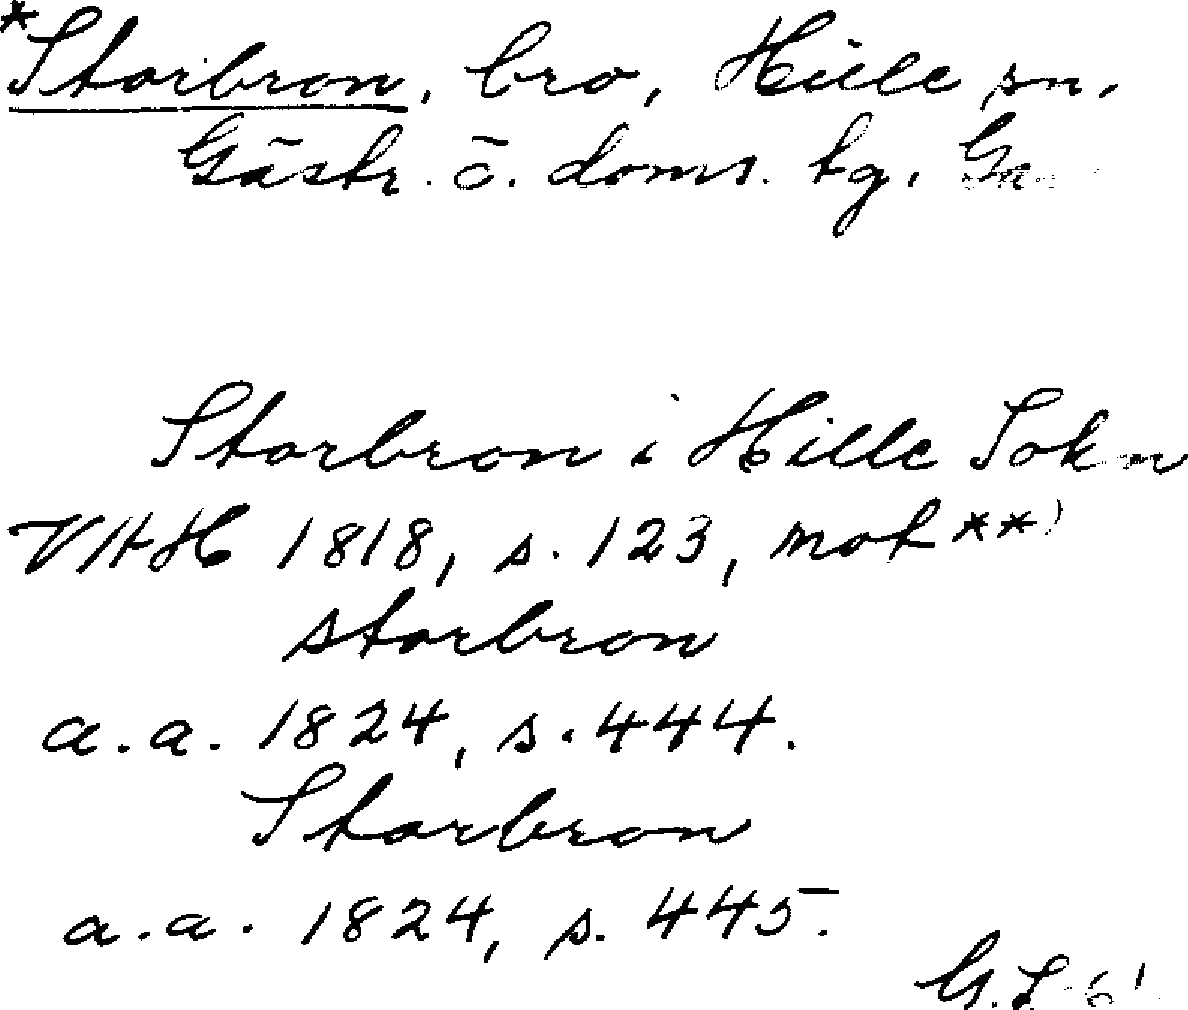 *Storbron, bro, Hille sn,
Gästr. ö. doms. tg, Ga
Storbron i Hille Sokn
VHH 1818, s. 123, not **)
storbron
a.a. 1824, s. 444.
Storbron
a.a. 1824, s. 445.
G.L. 61